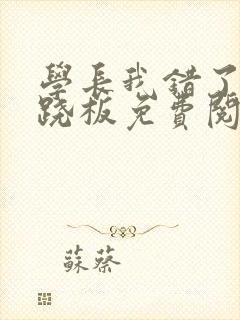 學長我錯了
跷板免費閱
蘇蔡